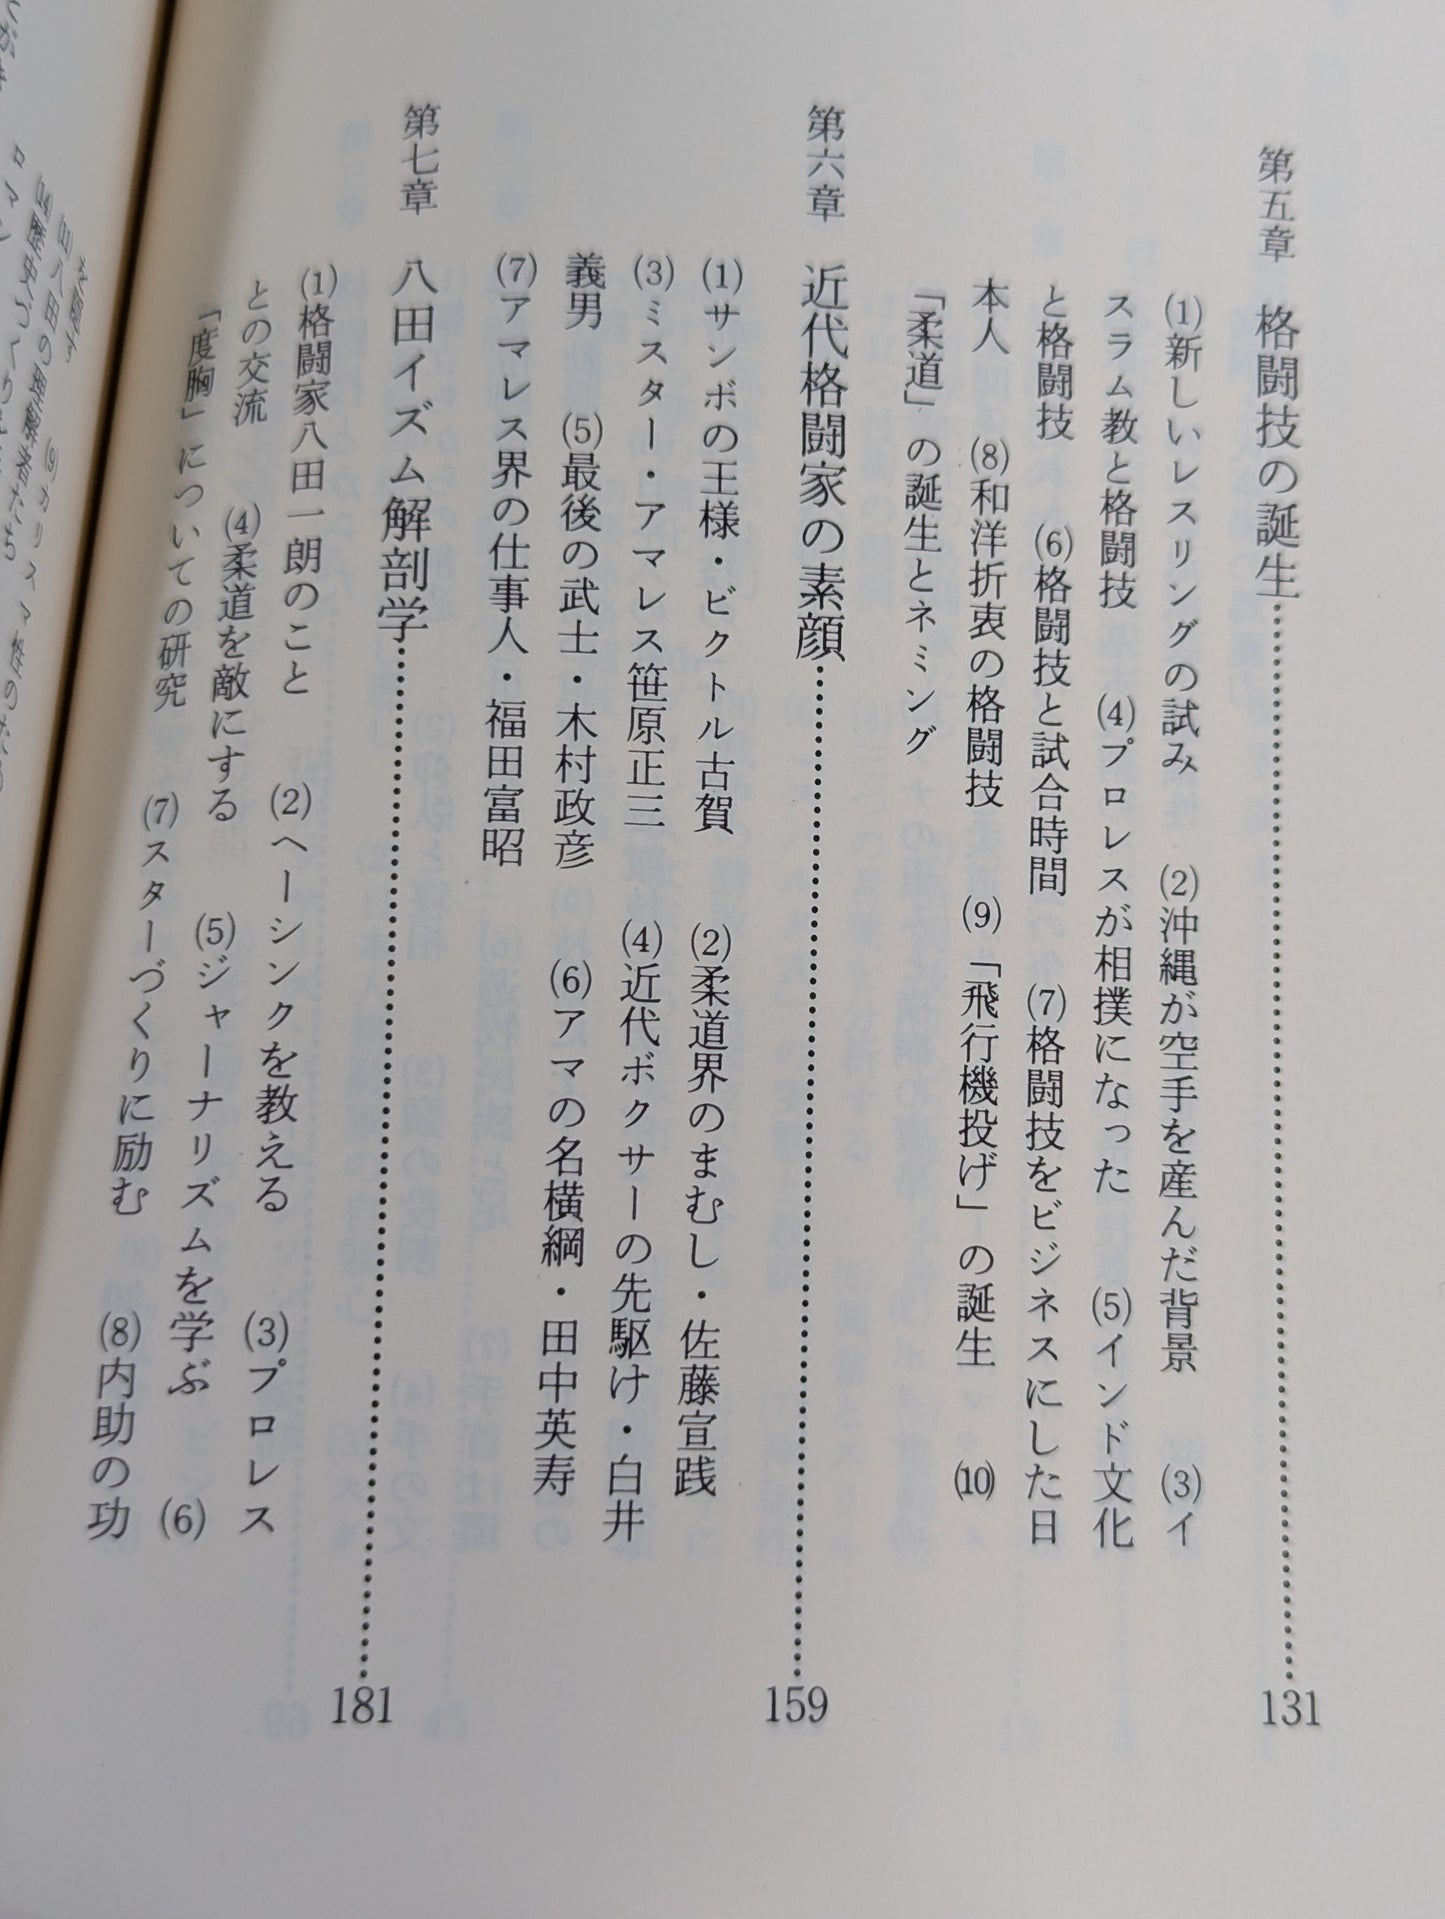 第五章　格闘技の誕生……………………131
⑴新しいレスリングの試み　⑵沖縄が空手を産んだ背景　⑶イ
スラム教と格闘技　⑷プロレスが相撲になった　⑸インド文化
と格闘技　⑹格闘技と試合時間　⑺格闘技をビジネスにした日
本人　⑻和洋折衷の格闘技　⑼「飛行機投げ」の誕生　⑽
「柔道」の誕生とネミング
第六章　近代格闘家の素顔……………………159
⑴サンボの王様・ビクトル古賀　⑵柔道界のまむし・佐藤宣践
⑶ミスター・アマレス笹原正三　⑷近代ボクサーの先駆け・白井
義男　⑸最後の武士・木村政彦　⑹アマの名横綱・田中英寿
⑺アマレス界の仕事人・福田富昭
第七章　八田イズム解剖学……………………181
⑴格闘家八田一朗のこと　⑵ヘーシンクを教える　⑶プロレス
との交流　⑷柔道を敵にする　⑸ジャーナリズムを学ぶ　⑹
「度胸」についての研究　⑺スターづくりに励む　⑻内助の功
⑾八田の理解者たち